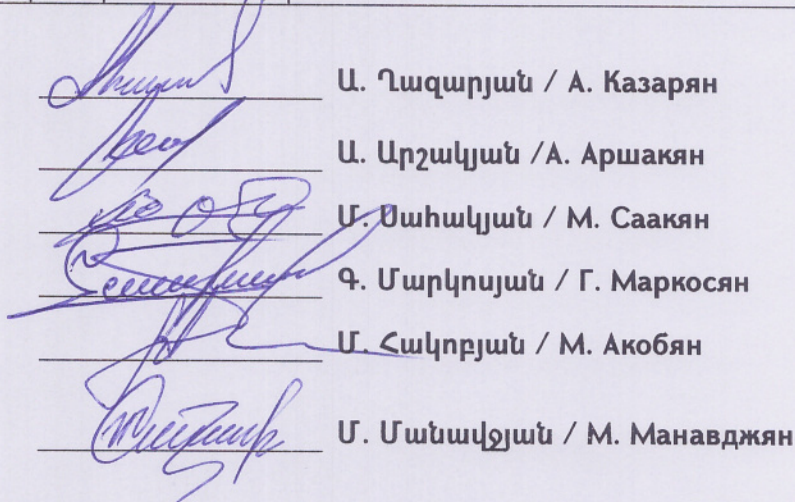 Ա. Ղազարյան / А. Казарян
Ա. Արշակյան /А. Аршакян
Մ. Սահակյան / М. Саакян
Գ. Մարկոսյան / Г. Маркосян
Մ. Հակոբյան / М. Акобян
Մ. Մանավջյան / М. Манавджян